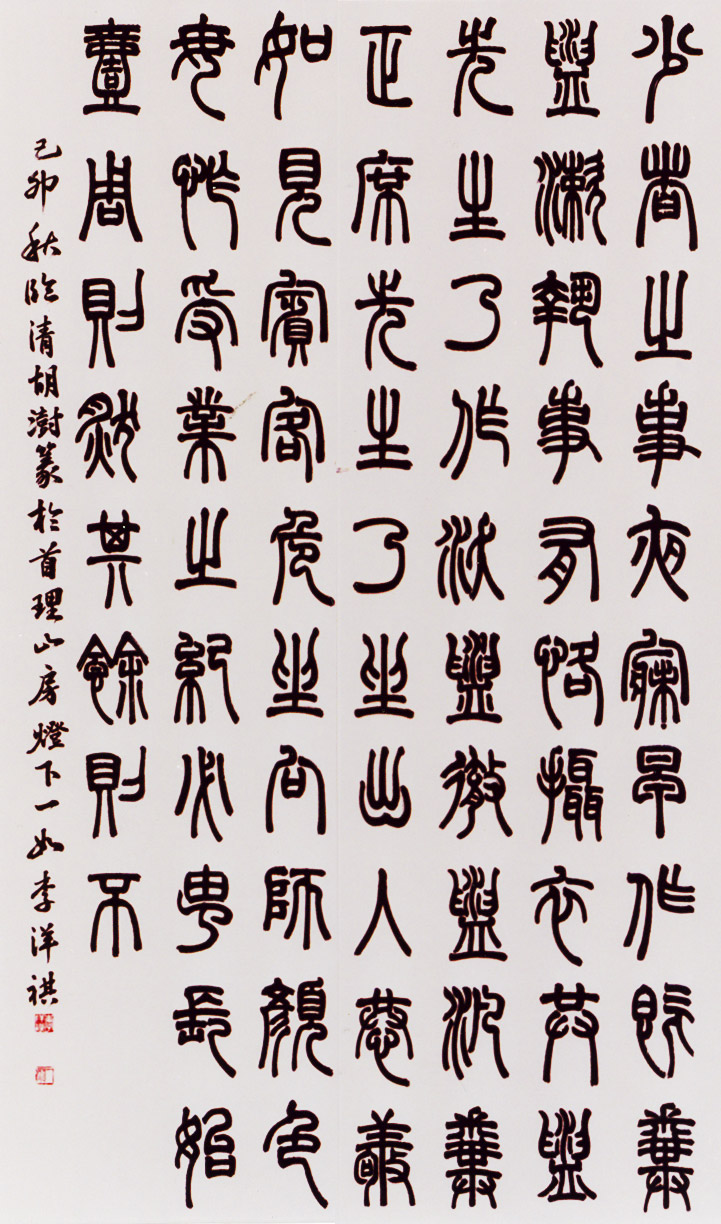 少者之事夜寐早作既糞
盥漱執事有恪攝衣共盥
先生乃作沃盥徹盥汎糞
正席先生乃坐出入恭敬
如見賓客危坐向師顏色
毋怍受業之紀必由長始
壹周則然其餘則不
己卯秋臨清胡澍篆於首理山房燈下一如李洋祺